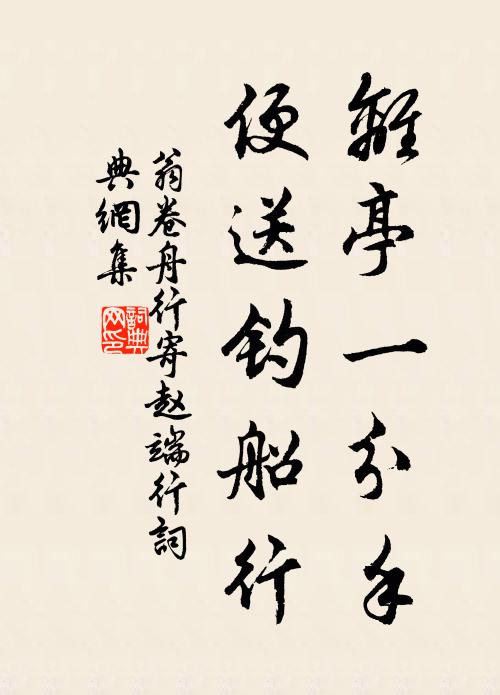 離亭一分手
便送钓船行
翁卷舟行寄赵端行詞
典網集
詞典
网印